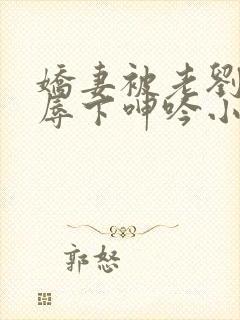 嬌妻被老劉
辱下呻吟小
郭怒